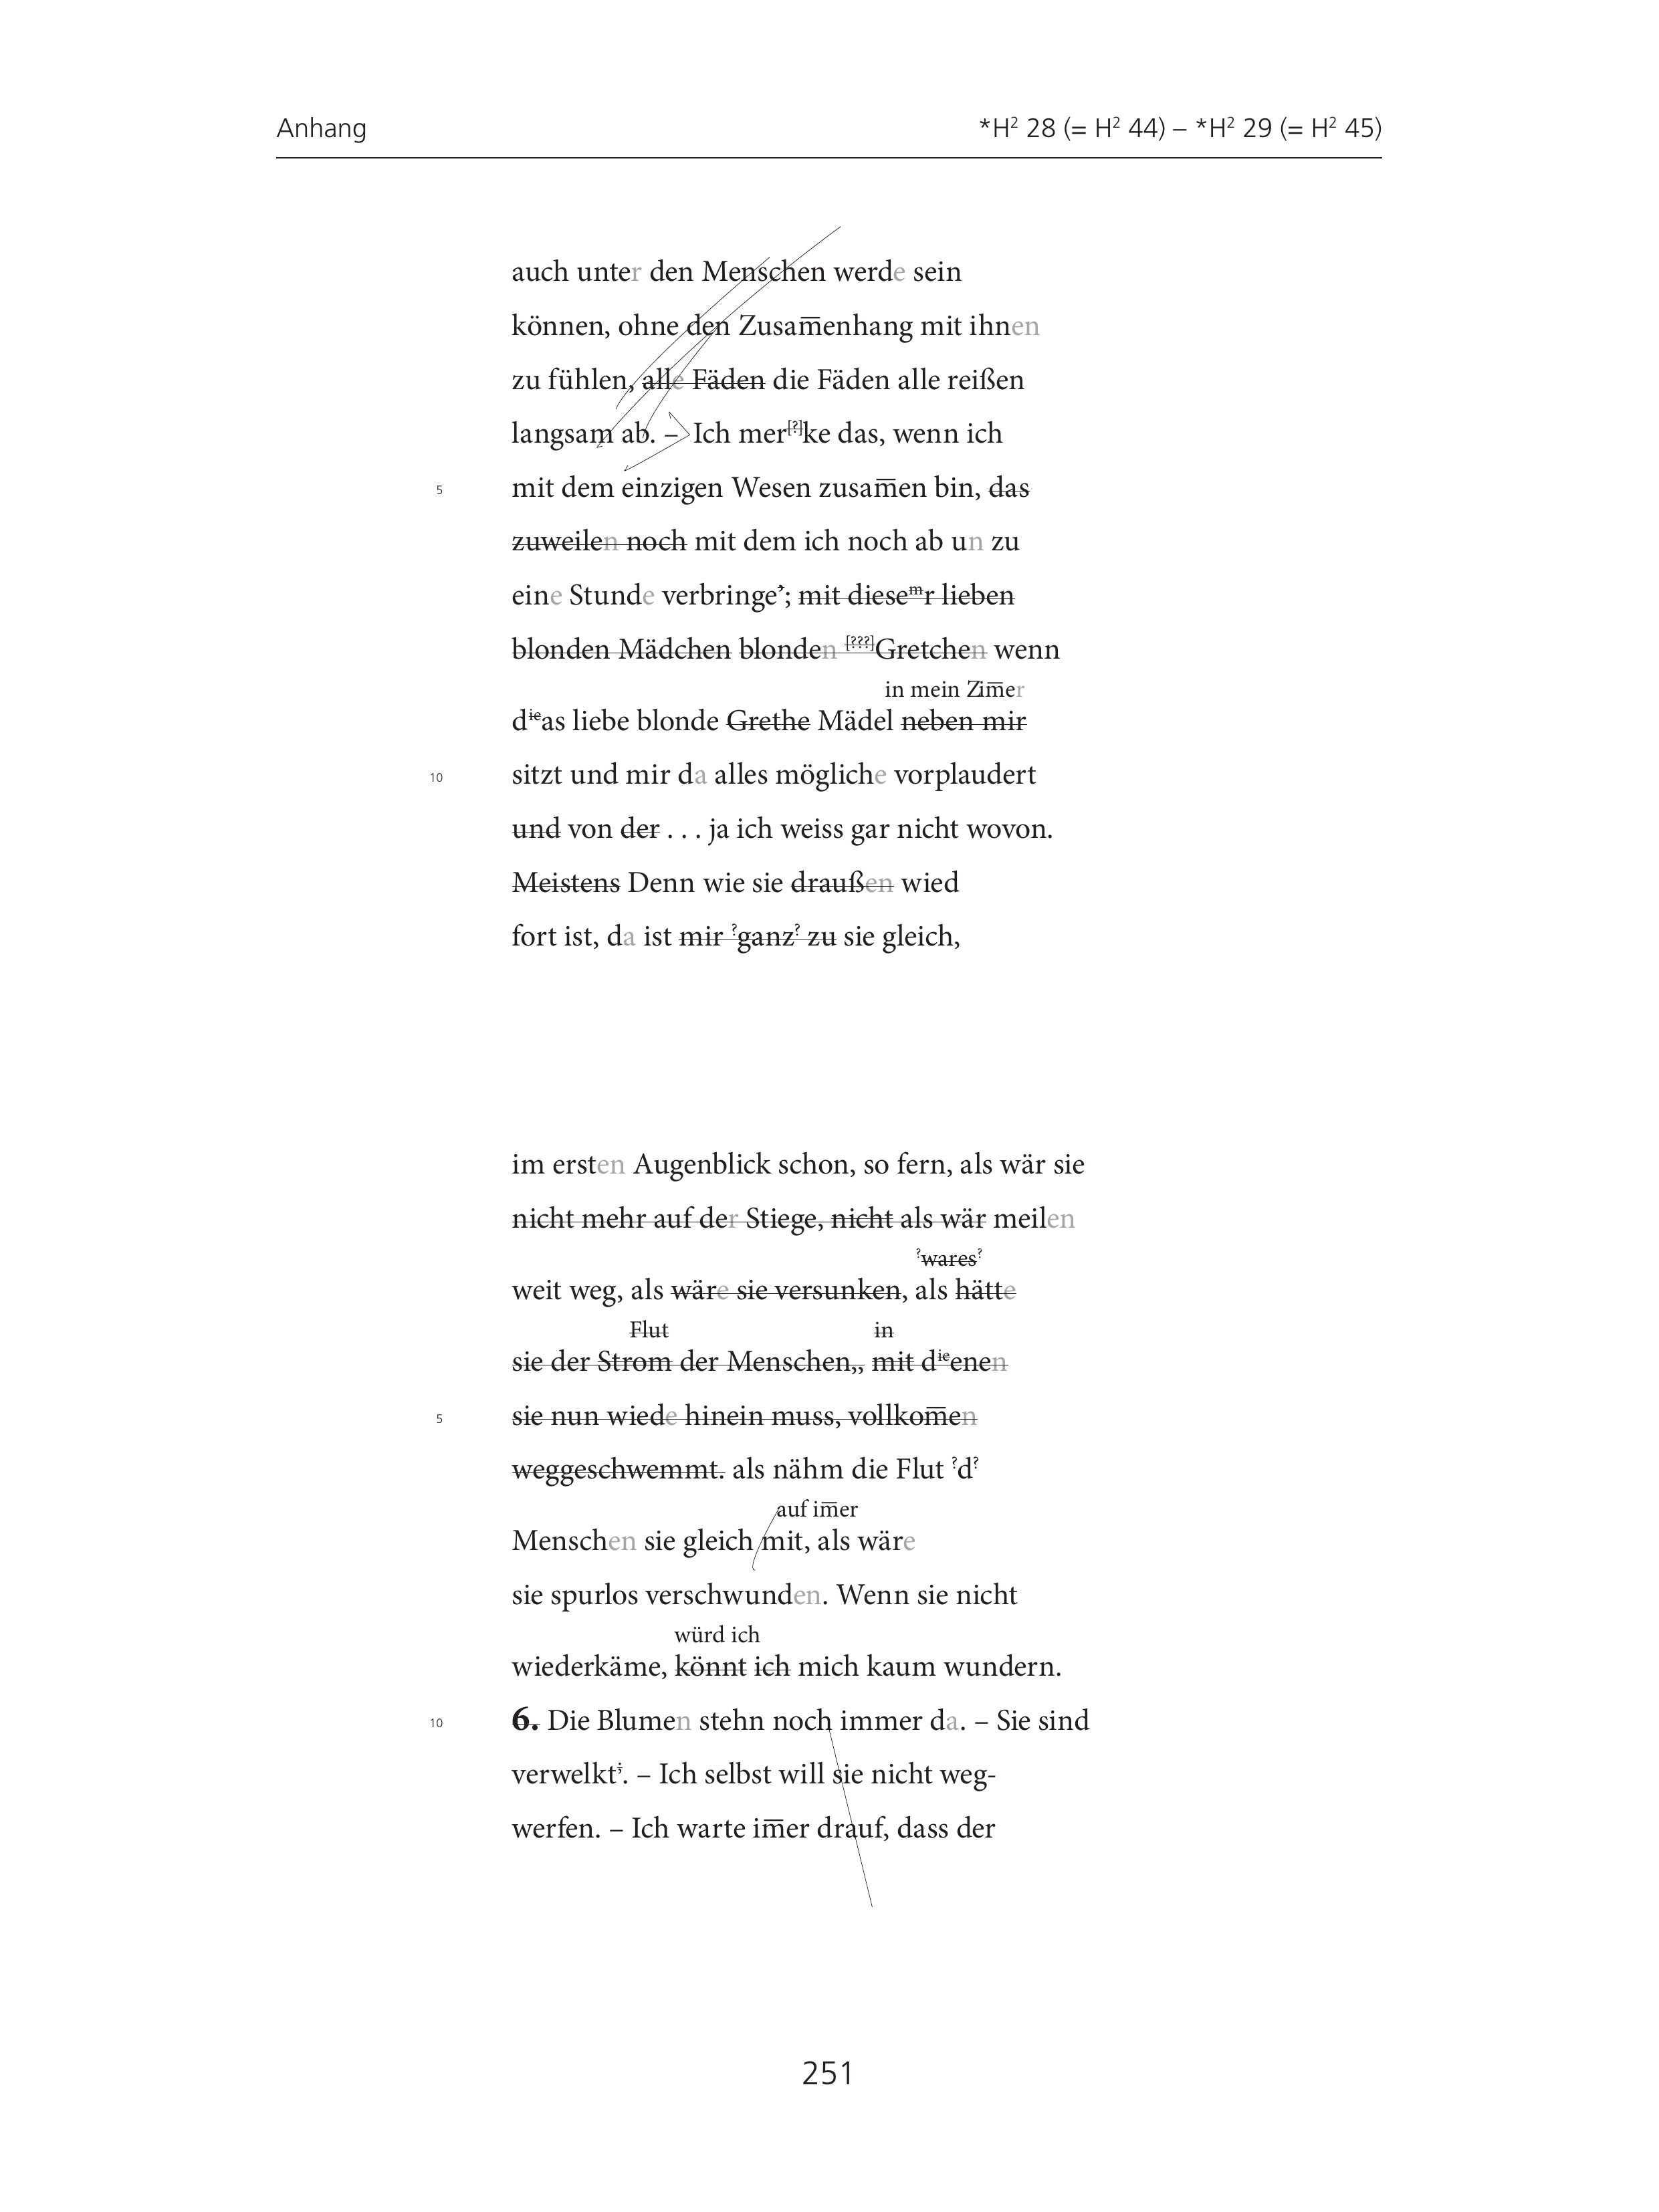 Anhang
*H² 28 (= H² 44) – *H² 29 (= H² 45)
auch unter den Menschen werde sein
können, ohne den Zusam̅enhang mit ihnen
zu fühlen, alle Fäden die Fäden alle reißen
langsam ab. – Ich mer[?]ke das, wenn ich
5 mit dem einzigen Wesen zusam̅en bin, das
zuweilen noch mit dem ich noch ab un zu
eine Stunde verbringe’; mit diesemr lieben
blonden Mädchen blonden [???]Gretchen wenn
in mein Zim̅er
dieas liebe blonde Grethe Mädel neben mir
10 sitzt und mir da alles mögliche vorplaudert
und von der . . . ja ich weiss gar nicht wovon.
Meistens Denn wie sie draußen wied
fort ist, da ist mir ?ganz? zu sie gleich,
im ersten Augenblick schon, so fern, als wär sie
nicht mehr auf der Stiege, nicht als wär meilen
?wares?
weit weg, als wäre sie versunken, als hätte
Flut in
sie der Strom der Menschen,, mit dieenen
5 sie nun wiede hinein muss, vollkom̅en
weggeschwemmt. als nähm die Flut ?d?
auf im̅er
Menschen sie gleich mit, als wäre
sie spurlos verschwunden. Wenn sie nicht
würd ich
wiederkäme, könnt ich mich kaum wundern.
10 6. Die Blumen stehn noch immer da. – Sie sind
verwelkt;. – Ich selbst will sie nicht weg-
werfen. – Ich warte im̅er drauf, dass der
251